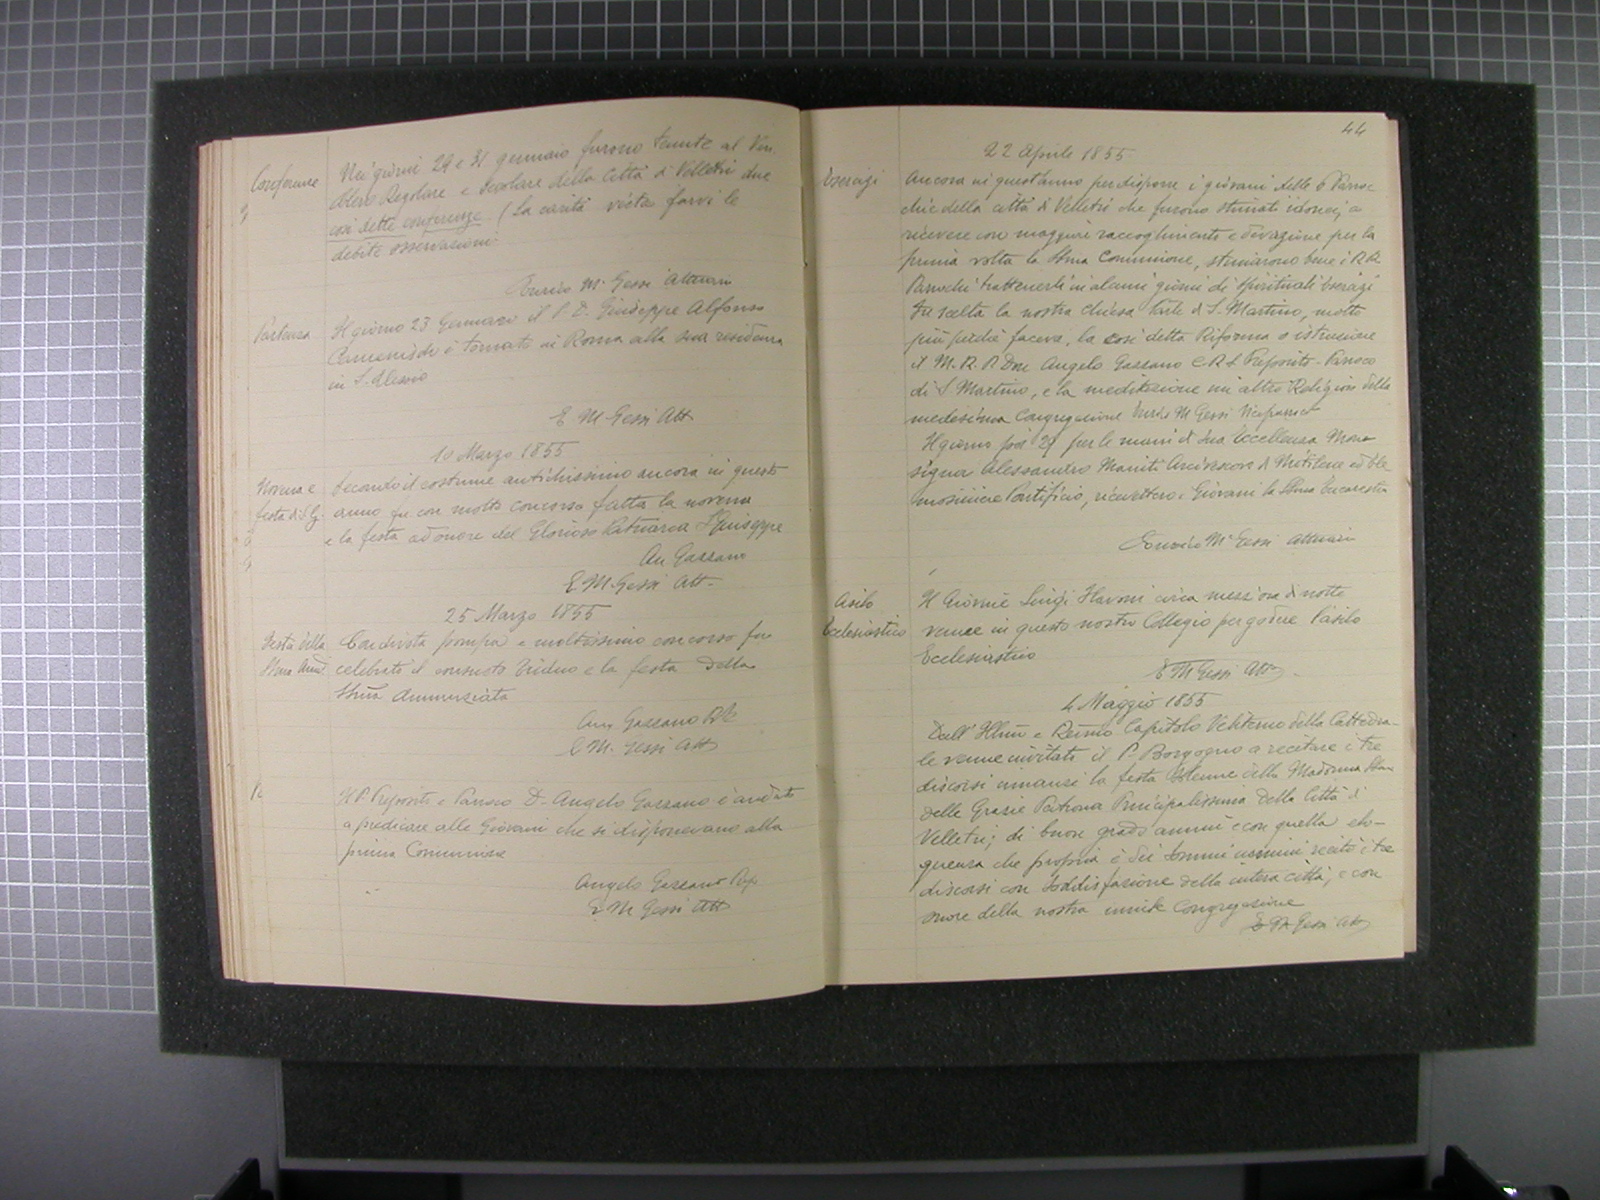 Conferenze
Nei giorni 29 e 31 gennaio furono tenute al Ven.
Clero Regolare e Secolare della Città di Velletri due
così dette conferenze (La carità vieta farvi le
debite osservazioni
Enrico M. Gessi Attuario
Partenza
Il giorno 23 Gennaro il P. D. Giuseppe Alfonso
è tornato in Roma alla sua residenza
in S. Alessio
E. M. Gessi Att.
10 Marzo 1855
Novena e
festa di S. G.
Secondo il costume antichissimo ancora in questo
anno fu con molto concorso fatta la novena
e la festa ad onore del Glorioso Patriarca S. Giuseppe
An. Gazzano
E. M. Gessi Att.
25 Marzo 1855
Festa della
SSma Annta
Con divota pompa e moltissimo concorso fu
celebrato il consueto triduo e la festa della
SSma Annunziata
Ang. Gazzano
E. M. Gessi Att.
Il P. Preposito e Paroco D. Angelo Gazzano è andato
a predicare alle Giovani che si disponevano alla
prima Comunione
Angelo Gazzano Prep.
E. M. Gessi Att.
44
22 Aprile 1855
Esercizi
Ancora in quest'anno per disporre i giovani delle 6 Paroc
chie della città di Velletri che furono stimati idonei a
ricevere con maggiore raccoglimento e divozione per la
prima volta la SSma Comunione, stimarono bene i RR.
Parochi trattenerli in alcuni giorni di Spirituali Esercizi
fu scelta la nostra chiesa Parle di S. Martino, molto
più perchè faceva, la così detta Riforma o istruzione
il M. R. P. Don Angelo Gazzano C.R.S. Preposito-Paroco
di S. Martino, e la meditazione un altro Religioso della
medesima Congregazione Enrico M. Gessi Viceparroco
Il giorno poi 29 per le mani di Sua Eccellenza Mon
signor Alessandro Arcivescovo di Mitilene ed Ele
mosiniere Pontificio, ricevettero i Giovani la SSma Eucarestia
Enrico M. Gessi Attuario
Asilo
Ecclesiastico
Il Giovine Luigi circa mezz'ora di notte
venne in questo nostro Collegio per godere l'asilo
Ecclesiastico
E. M. Gessi Att.
4 Maggio 1855
Dall'Illmo e Revmo Capitolo Veliterno della Cattedra-
le venne invitato il P. Borgogno a recitare i tre
discorsi innanzi la festa solenne della Madonna SSma
delle Grazie Patrona Principalissima della Città di
Velletri; di buon grado annuì e con quella elo-
quenza che propria è dei sommi uomini recitò i tre
discorsi con soddisfazione della intera città, e con
onore della nostra umile Congregazione
E. M. Gessi Att.